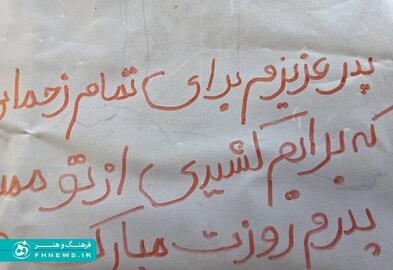 پدر عزیزم برای تمام زحمات
که برایم کشیدی از تو
پدرم روزت مبارک
فرهنگ و هنر
FHNEWS.IR